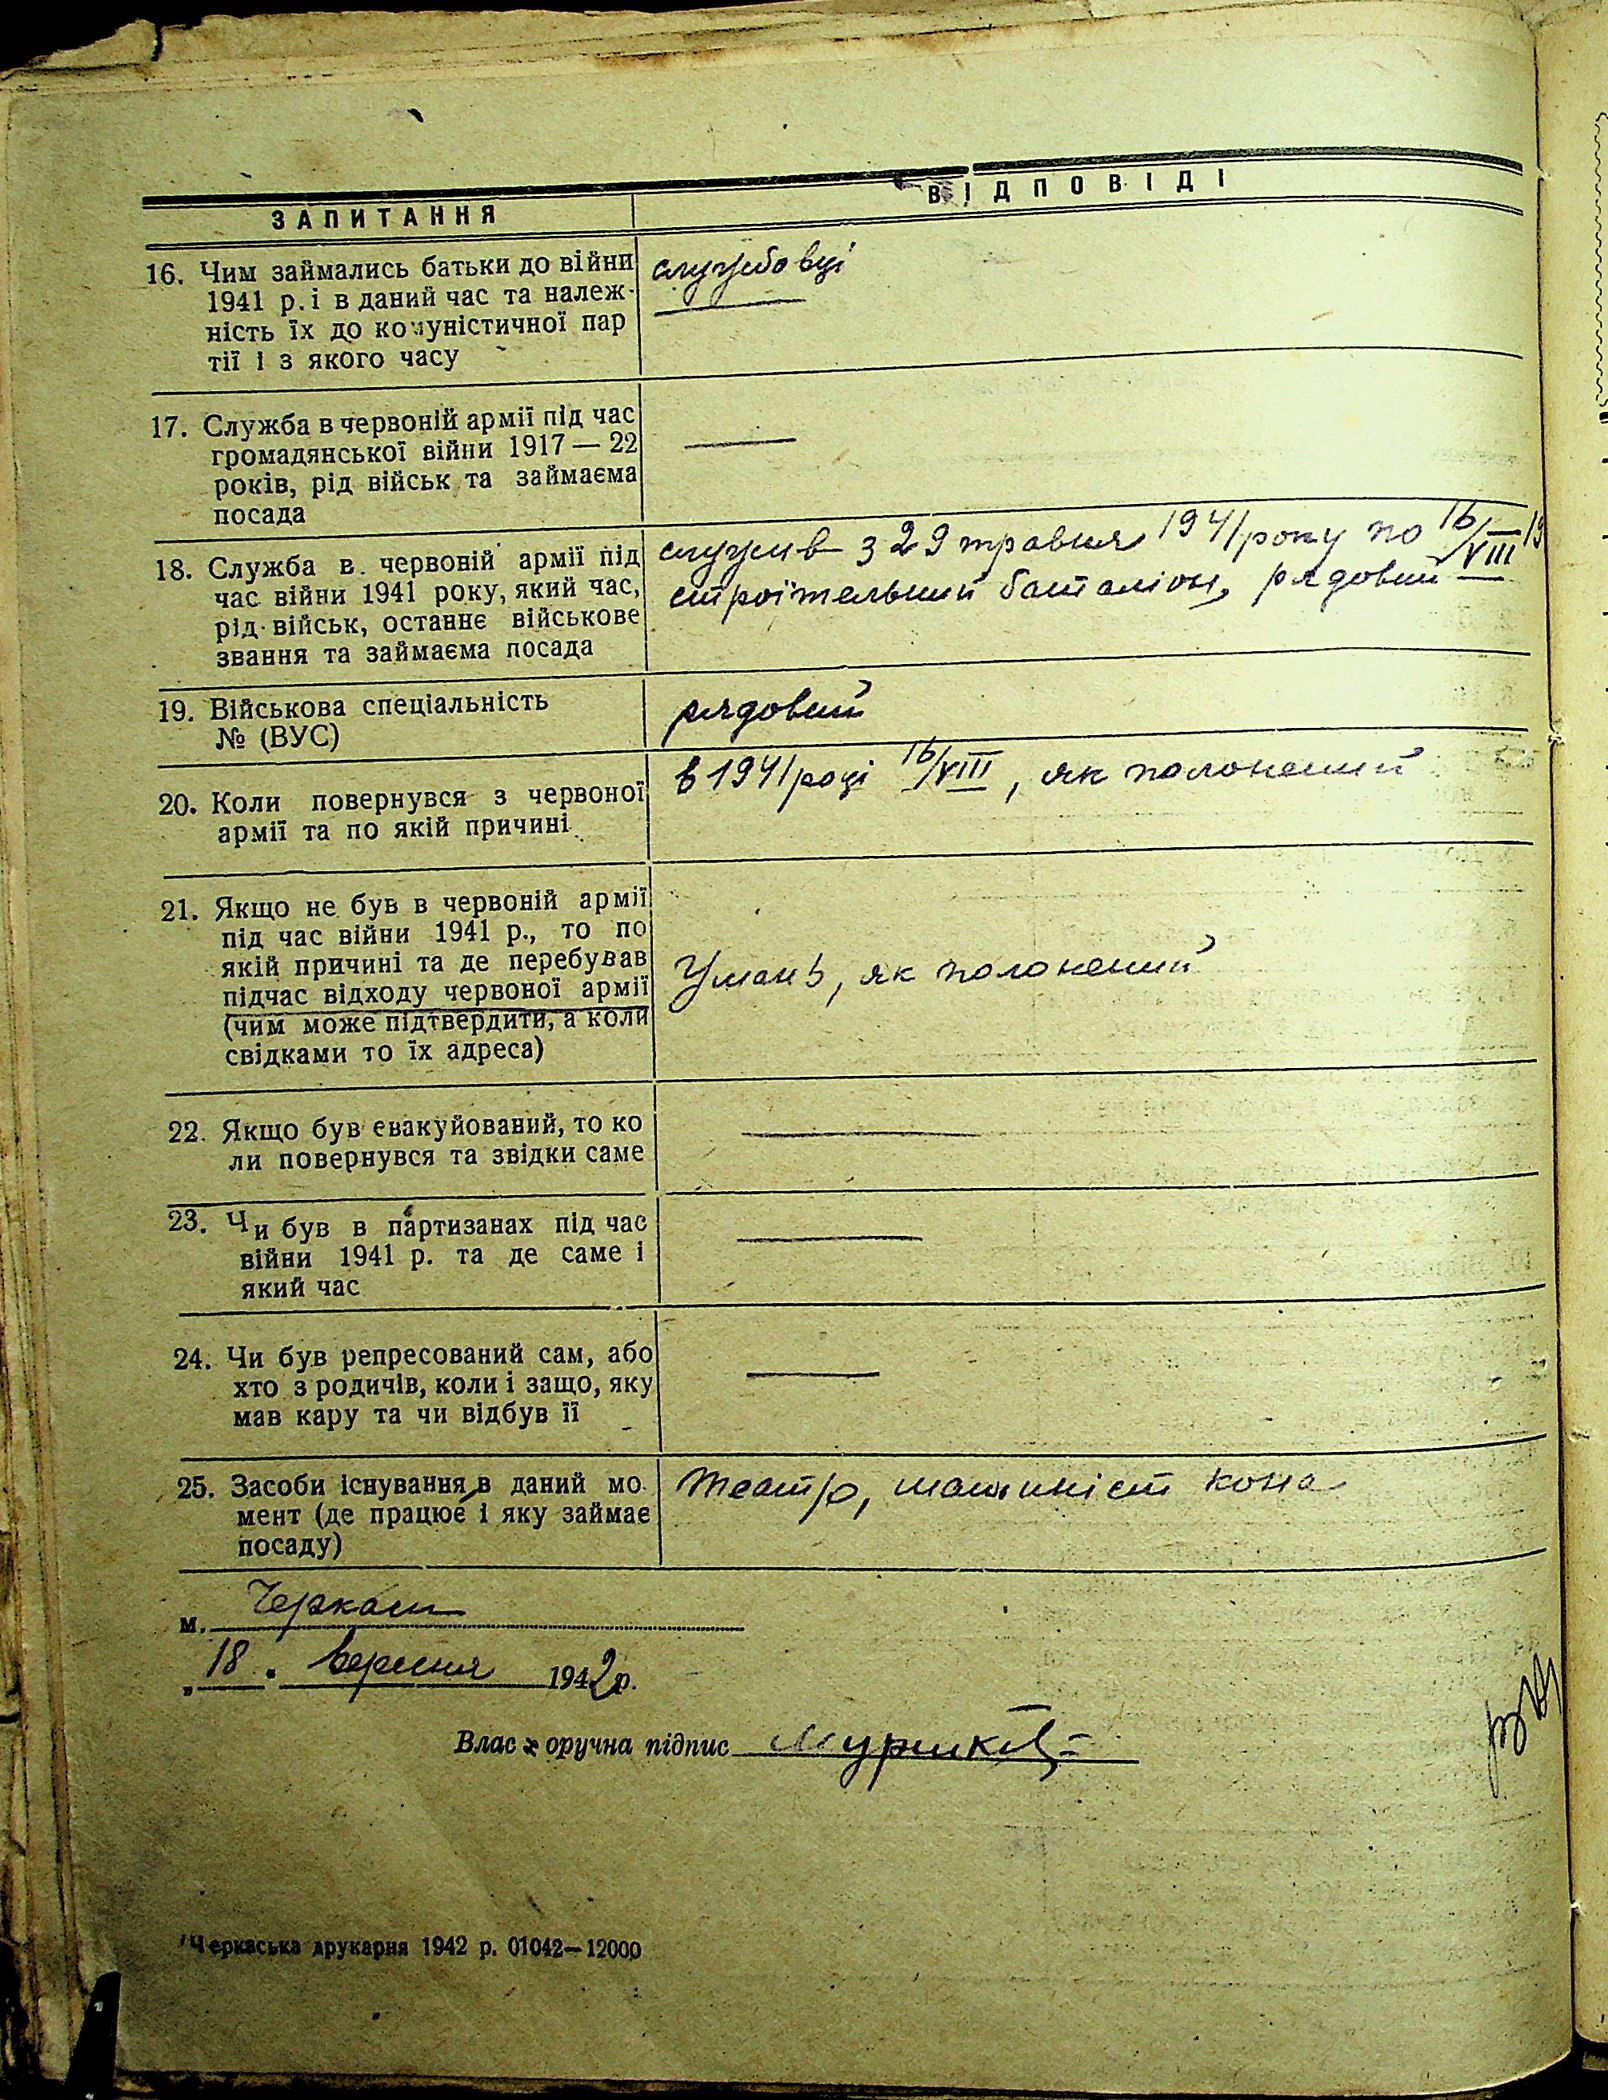 ЗАПИТАННЯ
ВІДПОВІДІ
16. Чим займались батьки до війни
1941 р. і в даний час та належ-
ність їх до комуністичної пар
тії і з якого часу
службовці
17. Служба в червоній армії під час
громадянської війни 1917 — 22
років, рід військ та займаєма
посада
18. Служба в червоній армії під
час війни 1941 року, який час,
рід військ, останнє військове
звання та займаєма посада
служив з 29 травня 1941 року по 16/VIII 19
строітельний баталіон, рядовий
19. Військова спеціальність
№ (ВУС)
рядовий
20. Коли повернувся з червоної
армії та по якій причині
в 1941 році 16/VIII, як полонений
21. Якщо не був в червоній армії
під час війни 1941 р., то по
якій причині та де перебував
підчас відходу червоної армії
(чим може підтвердити, а коли
свідками то їх адреса)
Умань, як полонений
22. Якщо був евакуйований, то ко
ли повернувся та звідки саме
23. Чи був в партизанах під час
війни 1941 р. та де саме і
який час
24. Чи був репресований сам, або
хто з родичів, коли і защо, яку
мав кару та чи відбув її
25. Засоби існування в даний мо
мент (де працює і яку займає
посаду)
Театр, машиніст кона
м. Черкаси
„18" вересня 1942 р.
Влас оручна підпис
Черкаська друкарня 1942 р. 01042—12000